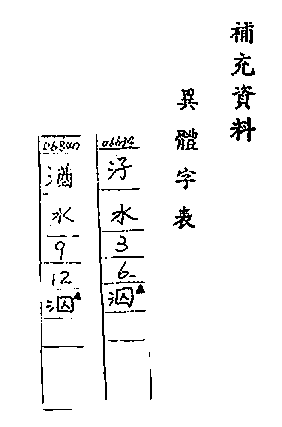 補充資料
異體字表
汓
水
3
6
泅
水
9
12
泅